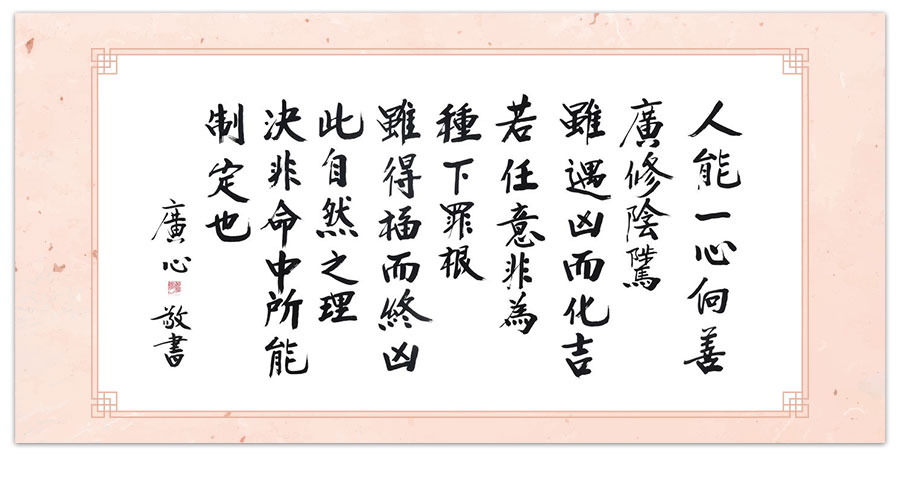 人能一心向善
廣修陰騭
雖遇凶而化吉
若任意非為
種下罪根
雖得福而終凶
此自然之理
決非命中所能
制定也
廣心
敬書